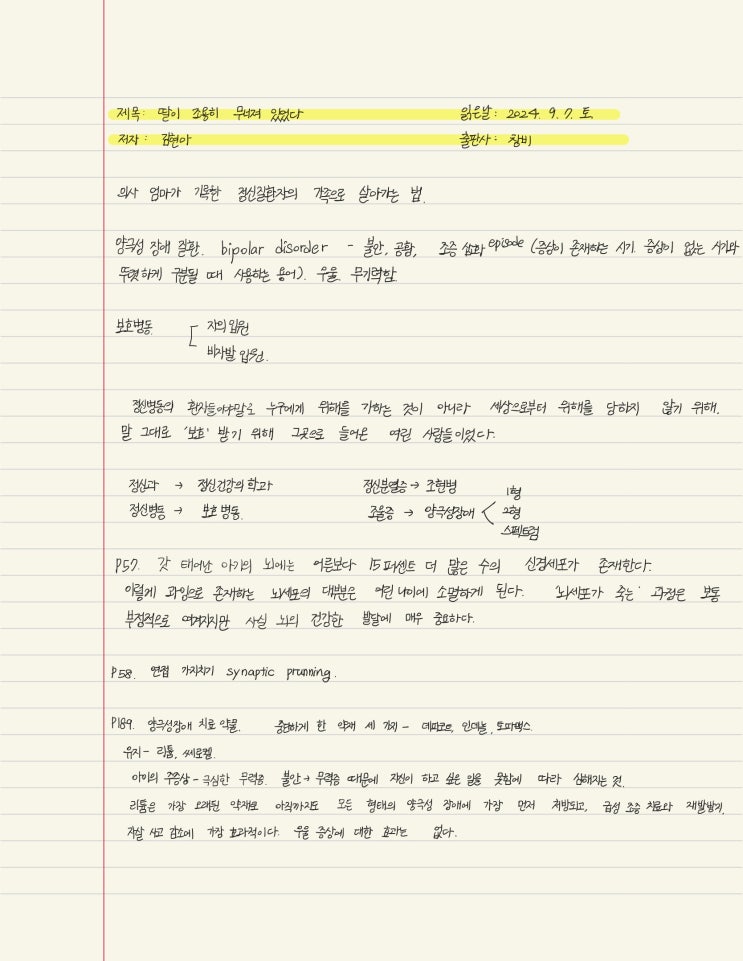 제목: 딸이 조용히 무너져 있었다 읽은날: 2024. 9. 7. 토
저자: 김현아 출판사: 창비
의사 엄마가 기록한 정신질환자의 가족으로 살아가는 법.
양극성 장애 질환. bipolar disorder - 불안, 공황, 조증 삽화 episode (증상이 존재하는 시기. 증상이 없는 시기와
뚜렷하게 구분될 때 사용하는 용어). 우울. 무기력함.
보호병동 자의입원
비자발 입원.
정신병동의 환자들이야말로 누구에게 위해를 가하는 것이 아니라 세상으로부터 위해를 당하지 않기 위해.
말 그대로 '보호' 받기 위해 그곳으로 들어온 여린 사람들이었다.
정신과 → 정신건강의학과 정신분열증 → 조현병
정신병동 → 보호병동. 조울증 → 양극성장애 < 1형
2형
스펙트럼
P57. 갓 태어난 아기의 뇌에는 어른보다 15퍼센트 더 많은 수의 신경세포가 존재한다.
이렇게 과잉으로 존재하는 뇌세포의 대부분은 어린 나이에 소멸하게 된다. '뇌세포가 죽는' 과정은 보통
부정적으로 여겨지지만 사실 뇌의 건강한 발달에 매우 중요하다.
P58. 연접 가지치기 synaptic prunning.
P189. 양극성장애 치료 약물. 중단하게 한 약제 세 가지 - 데파코트, 인데놀, 토파맥스.
유지 - 리튬, 쎄로켈.
아이의 주증상 - 극심한 무력증. 불안 → 무력증 때문에 자신이 하고 싶은 일을 못함에 따라 심해지는 것.
리튬은 가장 오래된 약제로 아직까지도 모든 형태의 양극성 장애에 가장 먼저 처방되고, 급성 조증 치료와 재발방지,
자살 사고 감소에 가장 효과적이다. 우울 증상에 대한 효과는 없다.